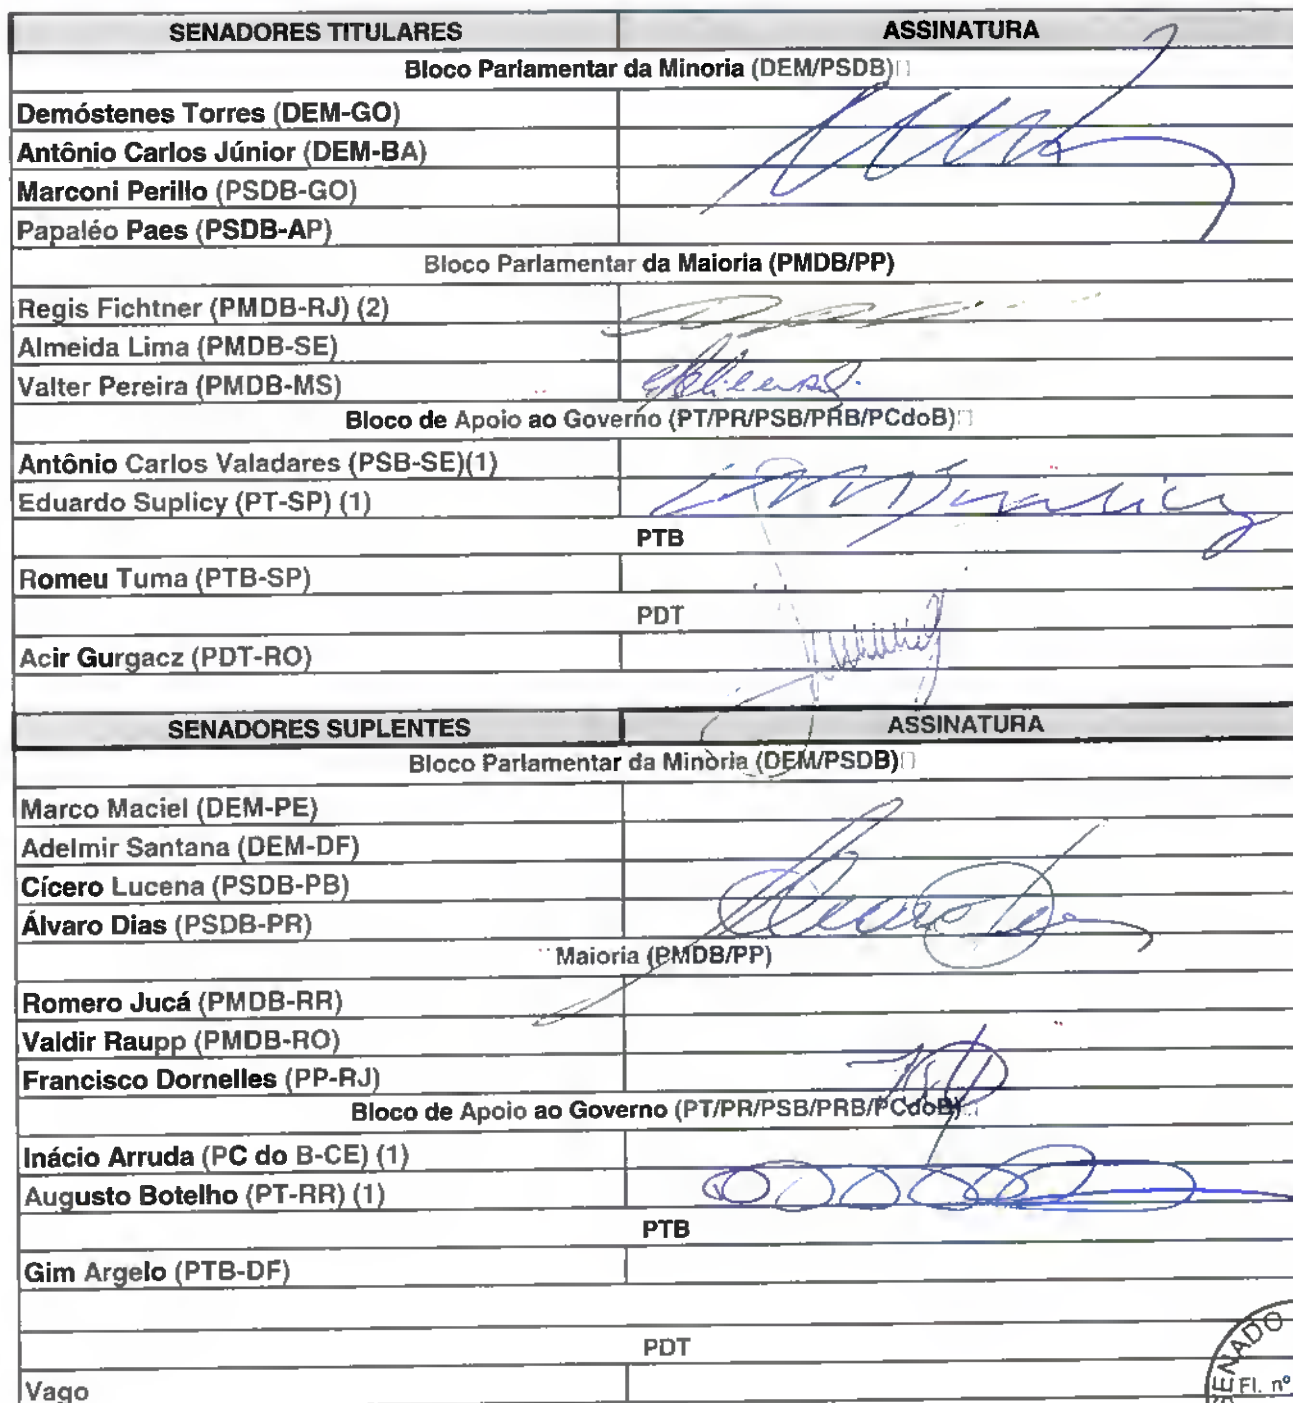 SENADORES TITULARES ASSINATURA
Bloco Parlamentar da Minoria (DEM/PSDB)
Demóstenes Torres (DEM-GO)
Antônio Carlos Júnior (DEM-BA)
Marconi Perillo (PSDB-GO)
Papaléo Paes (PSDB-AP)
Bloco Parlamentar da Maioria (PMDB/PP)
Regis Fichtner (PMDB-RJ) (2)
Almeida Lima (PMDB-SE)
Valter Pereira (PMDB-MS)
Bloco de Apoio ao Governo (PT/PR/PSB/PRB/PCdoB)
Antônio Carlos Valadares (PSB-SE)(1)
Eduardo Suplicy (PT-SP) (1)
PTB
Romeu Tuma (PTB-SP)
PDT
Acir Gurgacz (PDT-RO)
SENADORES SUPLENTES ASSINATURA
Bloco Parlamentar da Minoria (DEM/PSDB)
Marco Maciel (DEM-PE)
Adelmir Santana (DEM-DF)
Cícero Lucena (PSDB-PB)
Álvaro Dias (PSDB-PR)
Maioria (PMDB/PP)
Romero Jucá (PMDB-RR)
Valdir Raupp (PMDB-RO)
Francisco Dornelles (PP-RJ)
Bloco de Apoio ao Governo (PT/PR/PSB/PRB/PCdoB)
Inácio Arruda (PC do B-CE) (1)
Augusto Botelho (PT-RR) (1)
PTB
Gim Argelo (PTB-DF)
PDT
Vago
SENADO
Fl. nº